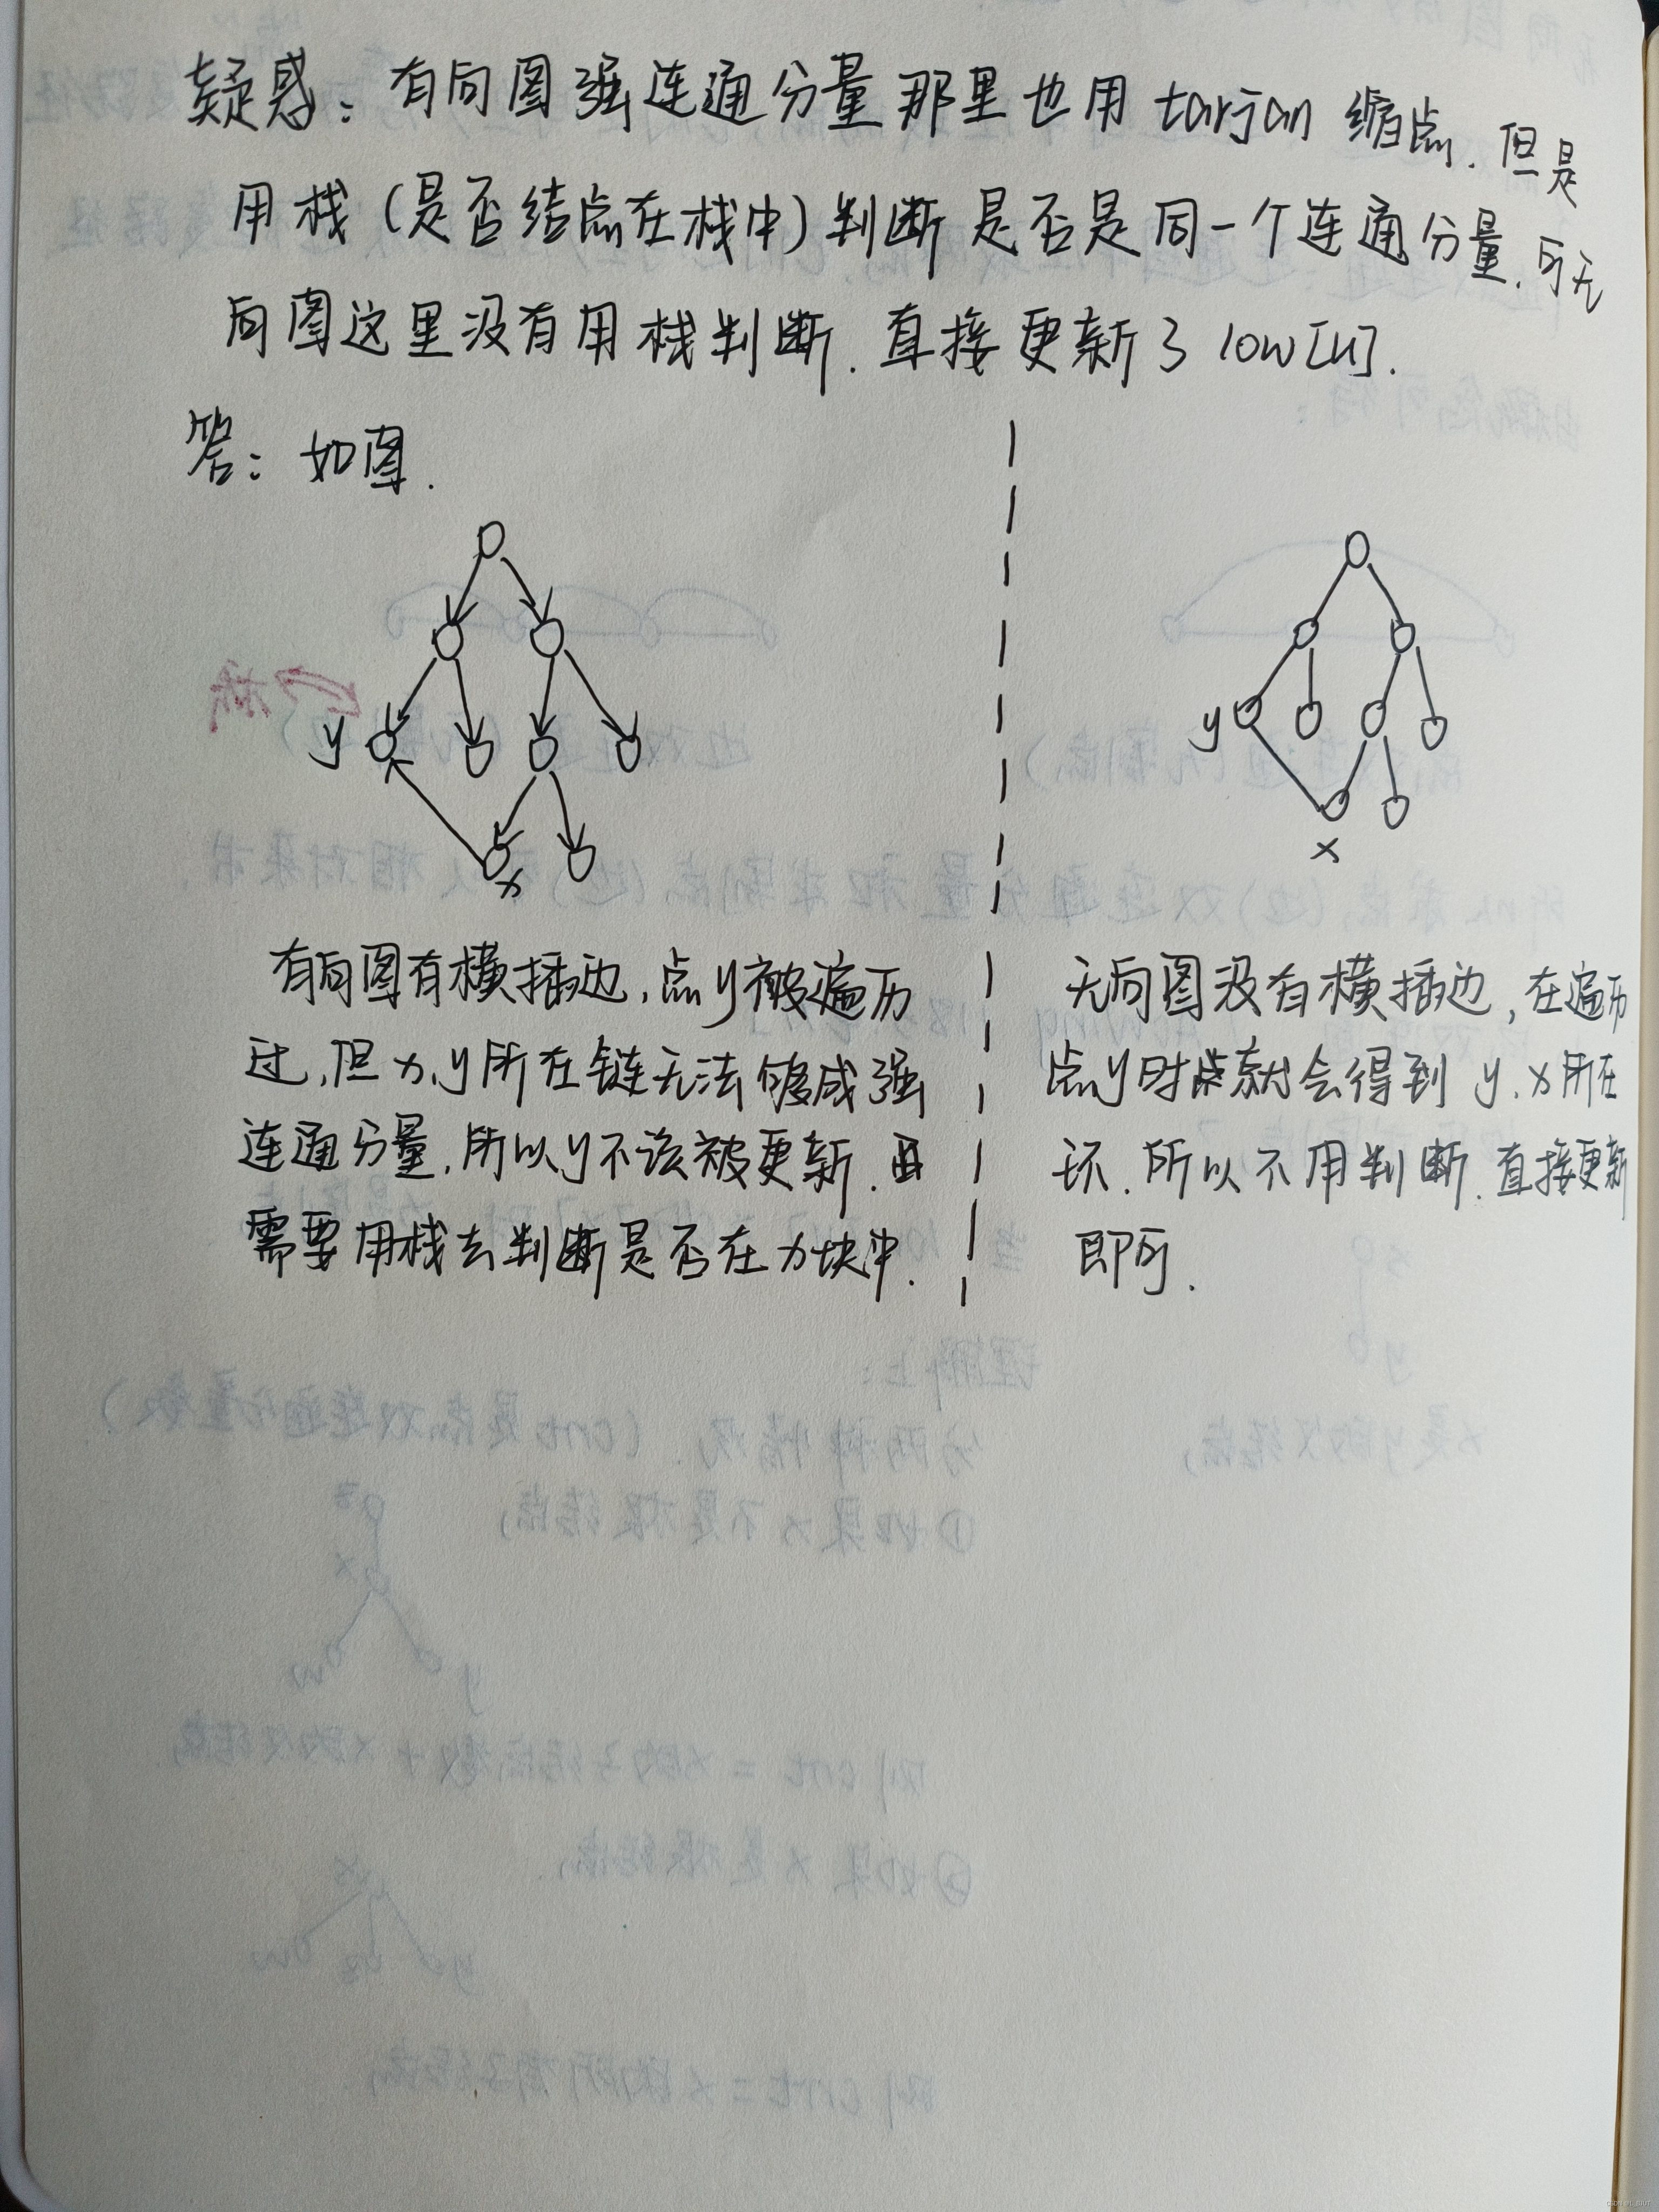 疑惑：有向图强连通分量那里也用 tarjan 缩点．但是
用栈（是否结点在栈中）判断是否是同一个连通分量，
向图这里没有用栈判断．直接更新了 low[u].
答：如图．
y
x
有向图有横插边，点y被遍历
过，但x,y所在链无法够成强
连通分量，所以y不该被更新．
需要用栈去判断是否在 块中．
y
x
无向图没有横插边，在遍历
点y时 就会得到 y、x所在
环．所以不用判断．直接更新
即可．